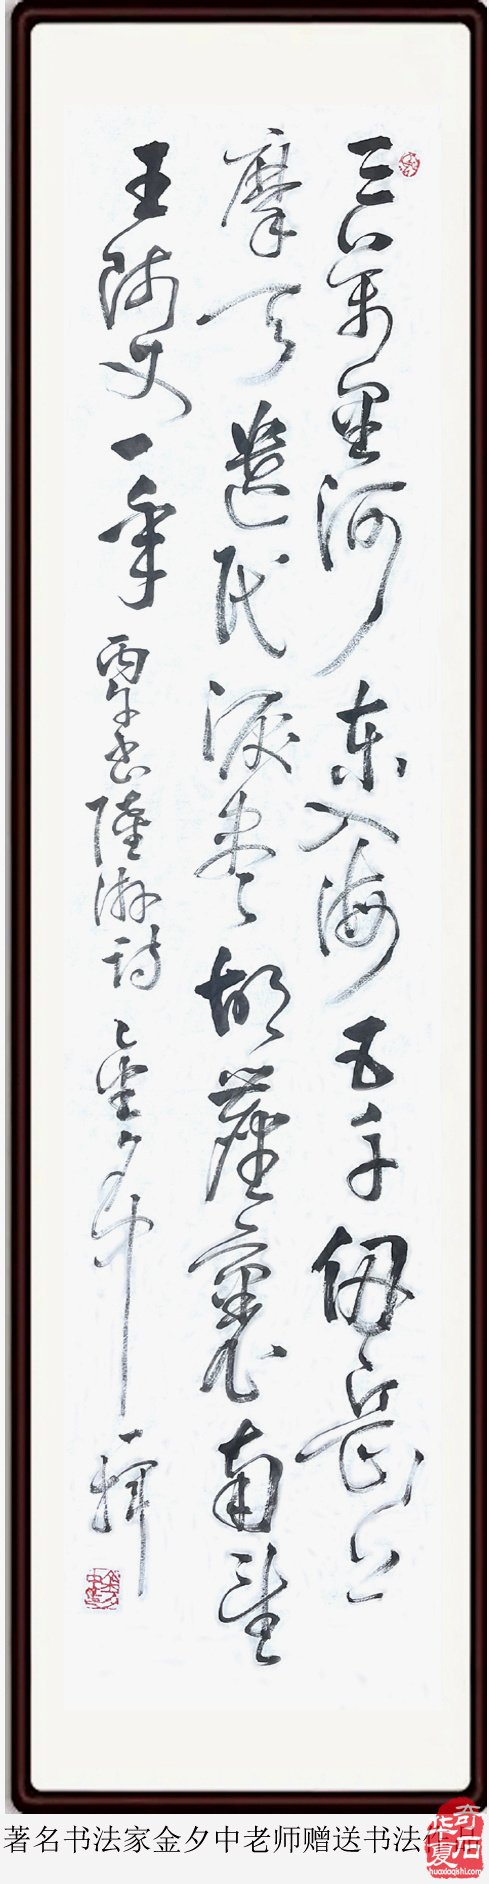 三萬里河东入海五千仞岳上
摩天遺民淚尽胡塵裏南望
王师又一年 丙午书陸游詩 金夕中 揮
著名书法家金夕中老师赠送书法作品
华夏奇石
huaxiaqishi.com